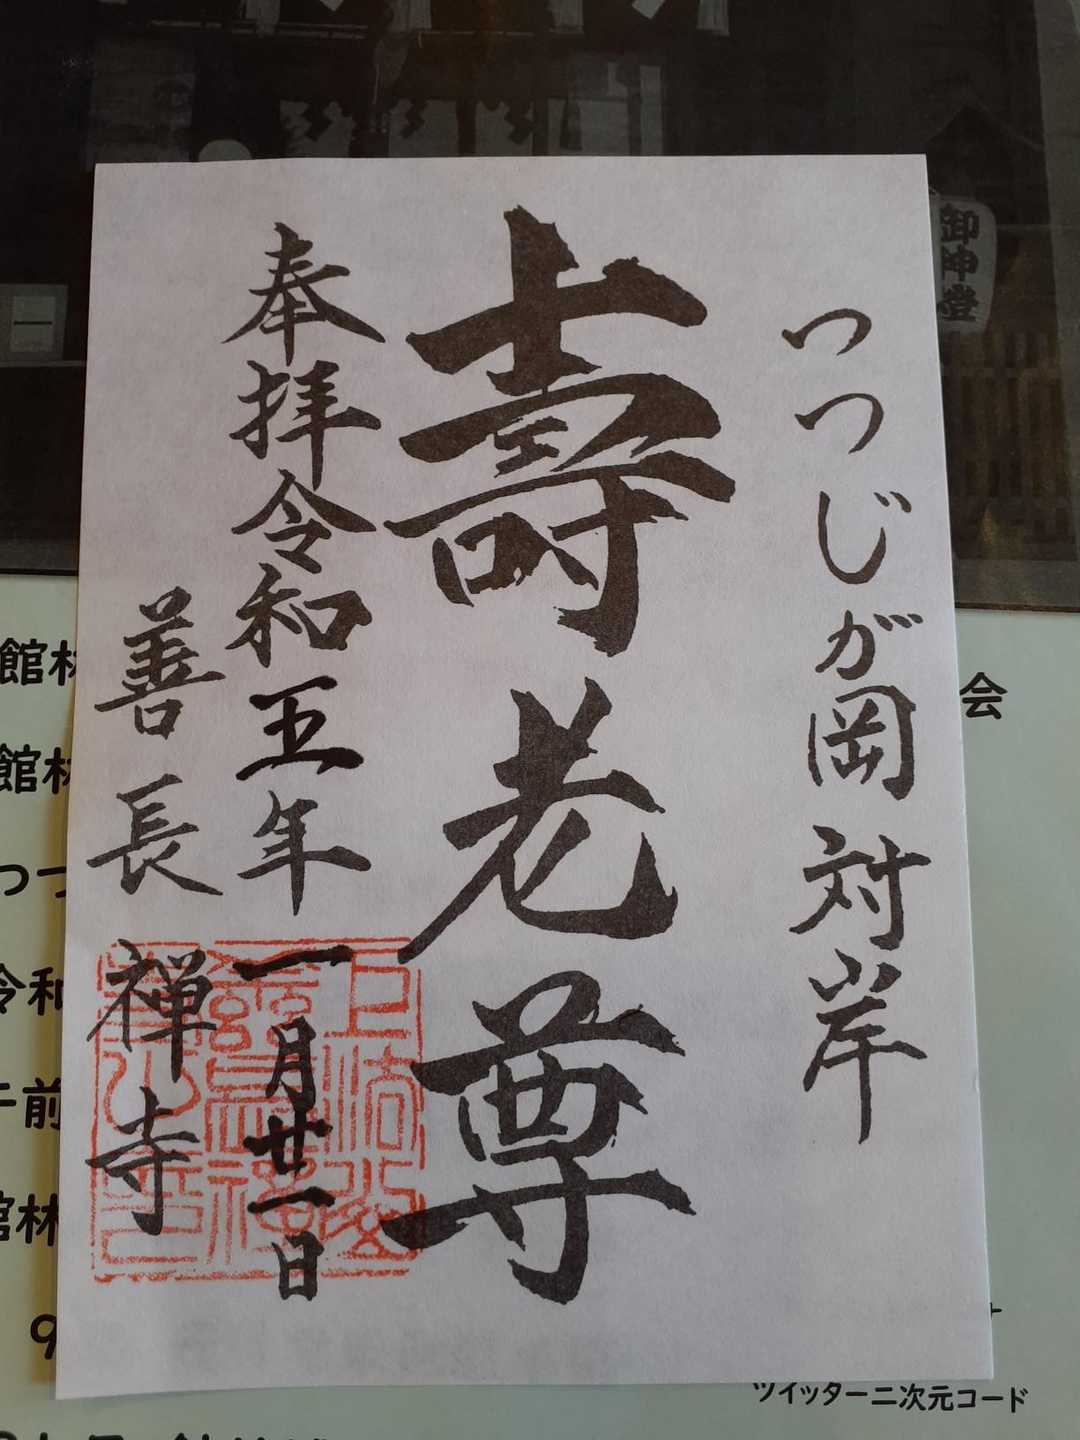 つつじが岡対岸
壽老尊
奉拝令和五年一月廿一日
善長禅寺
御神燈
会
館林
館林
つつ
令和
午前
館林
9
ツイッター二次元コード